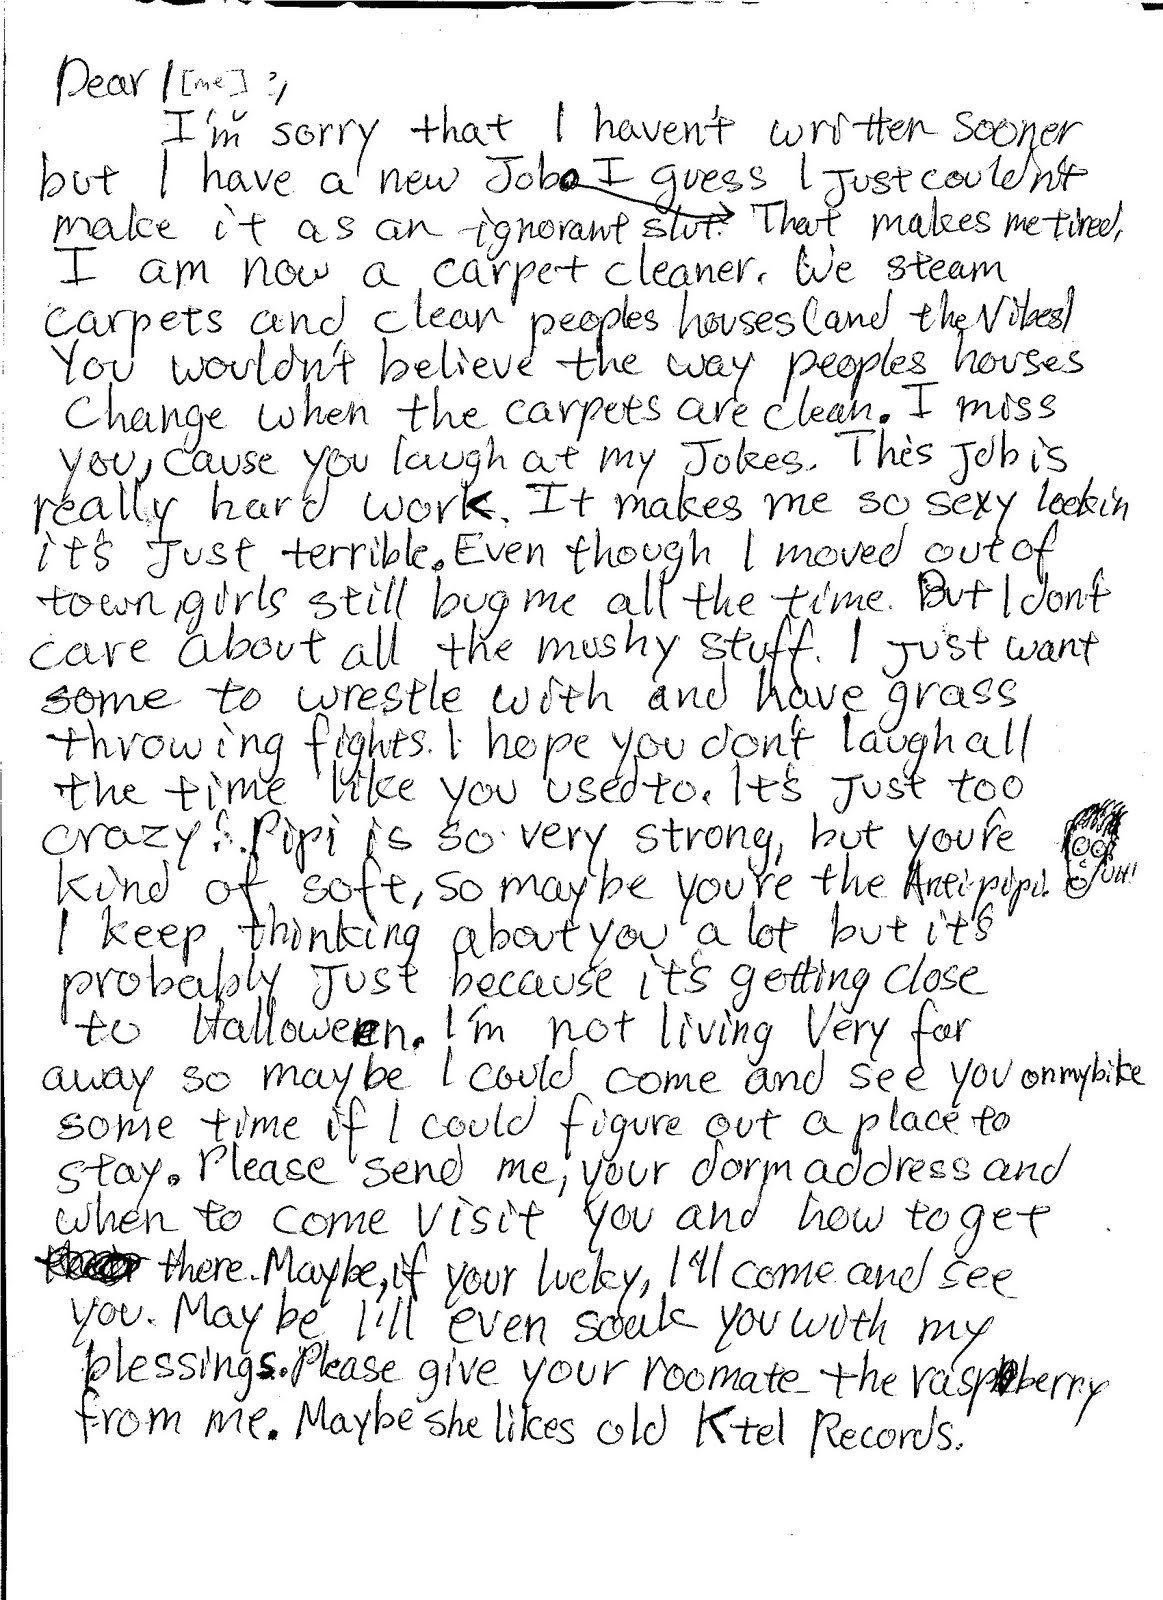 Dear [me];,
I'm sorry that I haven't written sooner
but I have a new Job. I guess I Just couldn't
make it as an ignorant slut. That makes me tired,
I am now a carpet cleaner. We steam
carpets and clean peoples houses (and the Vibes)
You wouldn't believe the way peoples houses
Change when the carpets are clean. I miss
you, cause you laugh at my Jokes. This Job is
really hard work. It makes me so sexy lookin
it's Just terrible. Even though I moved out of
town, girls still bug me all the time. But I don't
care about all the mushy stuff. I Just want
some to wrestle with and have grass
throwing fights. I hope you don't laugh all
the time like you used to. It's Just too
crazy! Pipi is so very strong, but you're
kind of soft, so maybe you're the Antipipi.
UH!
I keep thinking about you a lot but it's
probably Just because it's getting close
to Halloween. I'm not living Very far
away so maybe I could come and see you on my bike
some time if I could figure out a place to
stay. Please send me, your dorm address and
when to come visit you and how to get
there. Maybe, if your lucky, I'll come and see
you. May be I'll even soak you with my
blessings. Please give your roomate the raspberry
from me. Maybe she likes old Ktel Records.